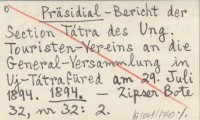 Präsidial-Bericht der
Section Tátra des Ung.
Touristen-Vereins an die
General-Versammlung in
Uj-Tátrafüred am 29. Juli
1894. 1894. – Zipser Bote
32, nr 32: 2.